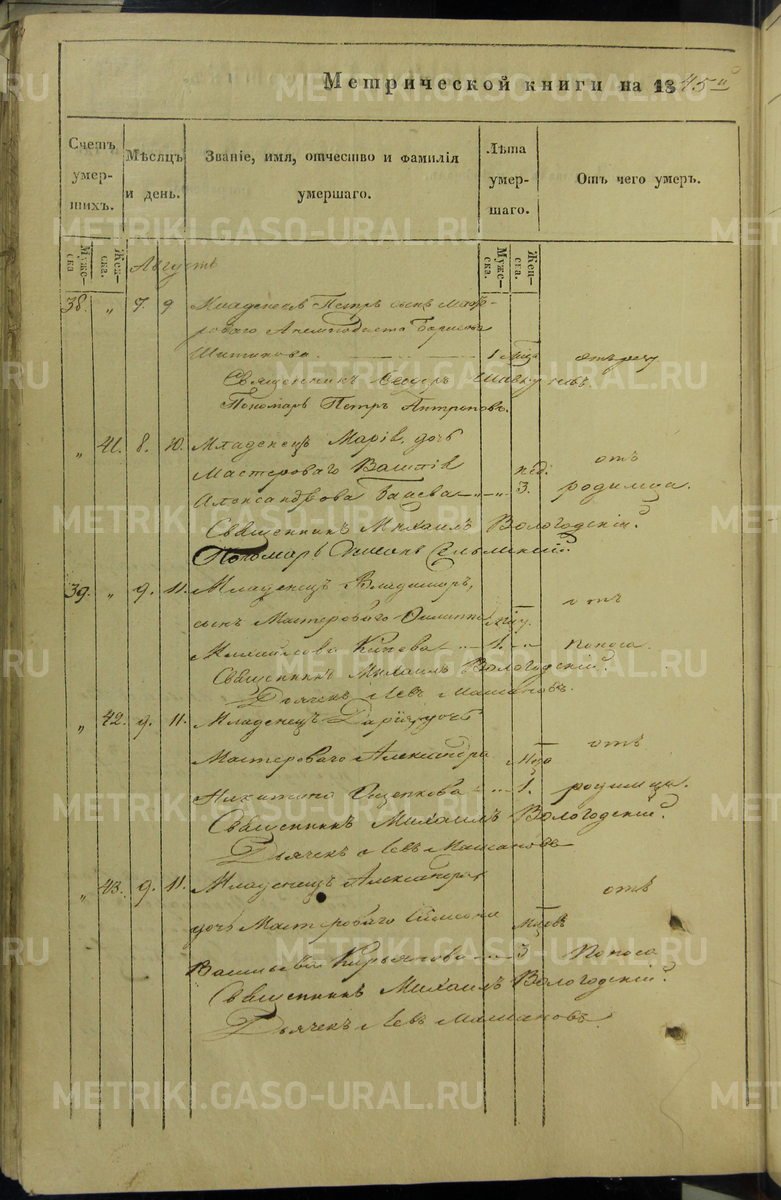 Метрической книги на 1845й
Счетъ умершихъ.
Мѣсяцъ и день.
Званіе, имя, отчество и фамилія умершаго.
Лѣта умершаго.
Отъ чего умеръ.
Мужеска.
Женска.
Августъ
Мужеска.
Женска.
38. „ 7. 9 Младенецъ Петръ сынъ Масте-
роваго Борисова
1 Мцъ
Священникъ
Пономарь Петръ Антроповъ.
„ 41. 8. 10. Младенецъ Марія, дочь
Мастероваго нед. отъ
Александрова 3. родимца.
Священникъ Михаилъ Вологодскій.
Пономарь
39. „ 9. 11. Младенецъ Владиміръ,
сынъ Мастероваго отъ
Михайлова 1. поноса.
Священникъ Михаилъ Вологодскій.
Дьячекъ Левъ
„ 42. 9. 11. Младенецъ Дарія, дочь
Мастероваго Александра отъ
Никитина Ощепкова 1. родимца.
Священникъ Михаилъ Вологодскій.
Дьячекъ Левъ
„ 43. 9. 11. Младенецъ Александра
дочь Мастероваго Симеона отъ
Васильева Кирьянова 3 поноса
Священникъ Михаилъ Вологодскій.
Дьячекъ Левъ
METRIKI.GASO-URAL.RU